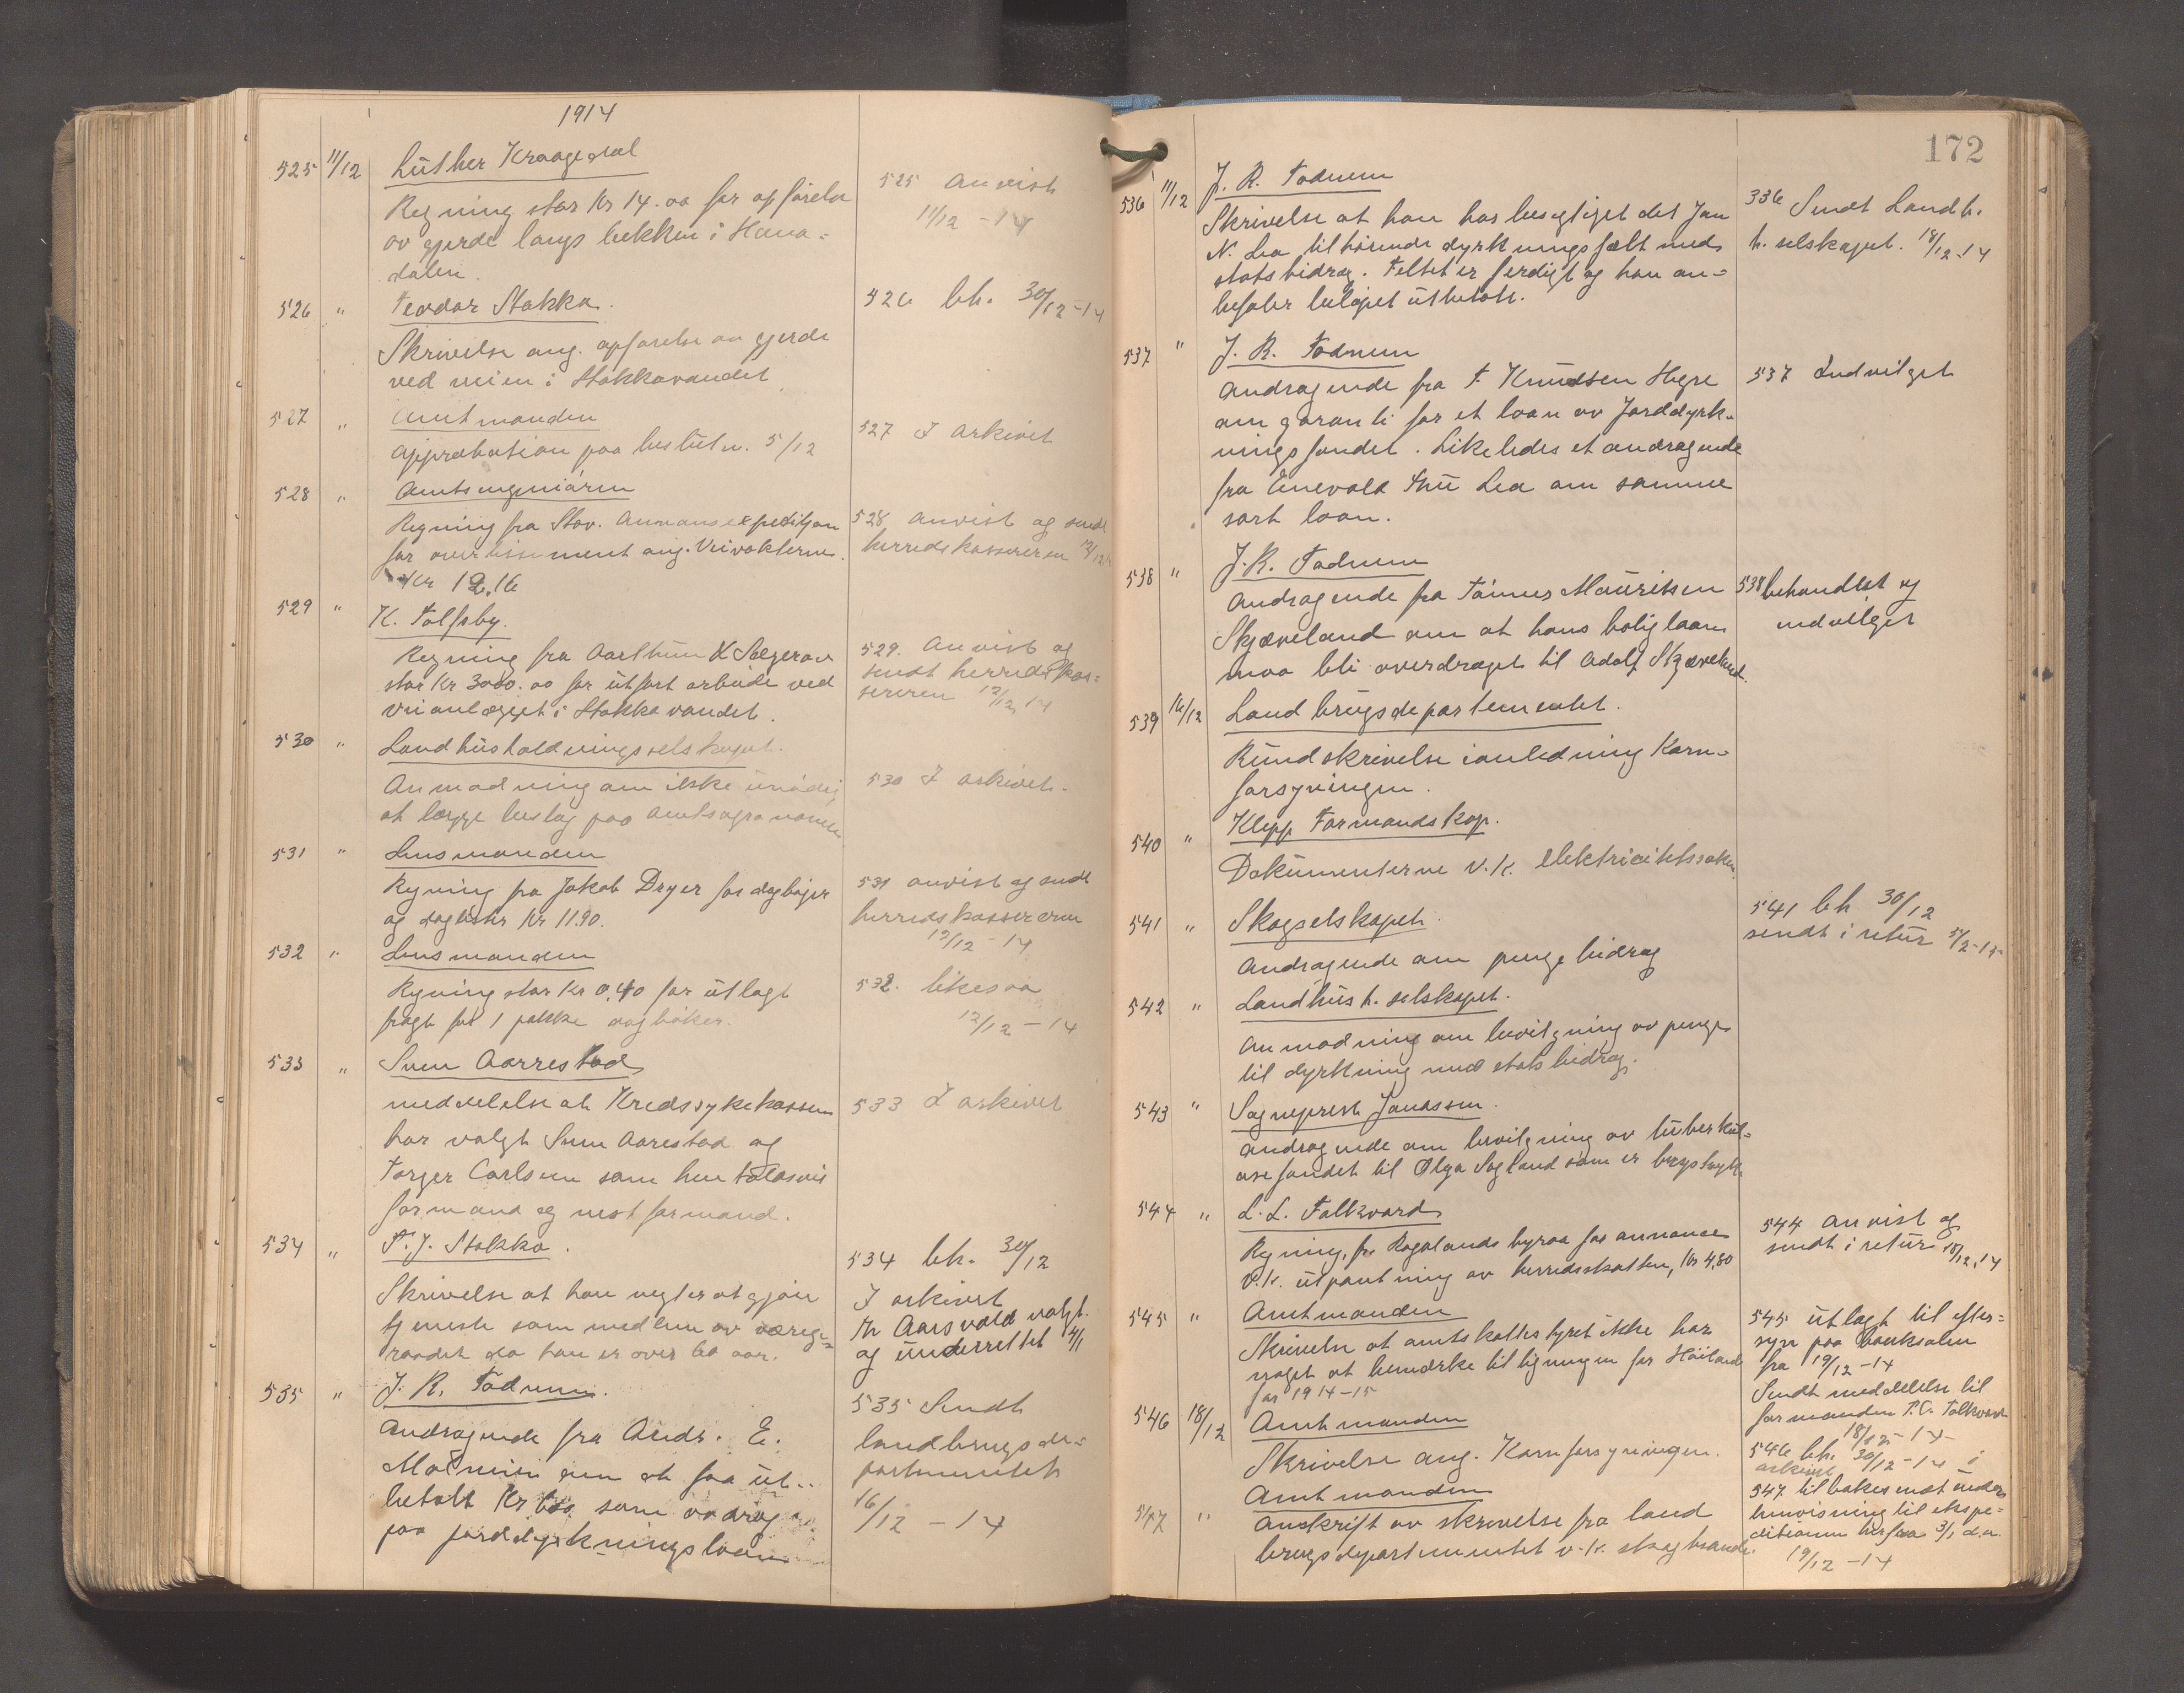 1914
525 11/12 Luther Kraagedal
Regning stor Kr 14.00 for opførelse
av gjerde langs bekken i Hana-
dalen.
525 Anvist
11/12 - 14
526 " Teodor Stokka.
Skrivelse ang. opførelse av gjerde
ved veien i Stokkavandet
526 bh. 30/12-14
527 " Amtmanden
Approbation paa beslutn. 5/12
527 I arkivet
528 " Amtsingeniøren
Regning fra Stav. Annonsexpedition
for avertissement ang. Veivokterne.
Kr 12.16
528 Anvist og sendt
herredskassereren 12/12
529 " K. Tolfsby.
Regning fra Aarthun & Salgeraas
stor Kr 3000.00 for utført arbeide ved
veianlægget i Stokkavandet.
529. Anvist og
sendt herredskas-
sereren 12/12 14
530 " Landhusholdningsselskapet.
Anmodning om ikke unødig
at lægge beslag paa amtsagronomen
530 I arkivet.
531 " Lensmanden
Regning fra Jakob Dreyer for dagbøger
og daglister Kr 11.90.
531 anvist og sendt
herredskassereren
12/12 - 14
532 " Lensmanden
Regning stor Kr 0,40 for utlagt
fragt for 1 pakke dagbøker.
532. likesaa
12/12 - 14
533 " Sven Aarrestad
meddelelse at Kredssykekassen
har valgt Sven Aarestad og
Torger Carlsen som henholdsvis
formand og nestformand.
533 I arkivet
534 " T. J. Stokka.
Skrivelse at han negter at gjøre
tjeneste som medlem av værge-
raadet da han er over 60 aar.
534 bh. 30/12
I arkivet
Th Aarsvold valgt.
og underrettet 4/1
535 " J. R. Todnem.
Andragende fra Andr. E.
Malmin om at faa ut-
betalt Kr 600 som avdrag
paa jorddyrkningslaan
535 Sendt
landbrugsde-
partementet
16/12 - 14
172
536 11/12 J. R. Todnem
Skrivelse at han har besigtiget det Jan
N. Lea tilhørende dyrkningsfælt med
statsbidrag. Feltet er færdigt og han an-
befaler beløpet utbetalt.
336 Sendt Landh.
h. selskapet. 18/12-14
537 " J. R. Todnem
Andragende fra T. Knudsen Hegre
om garanti for et laan av Jorddyrk-
ningsfondet. Likeledes et andragende
fra Enevald Thu Lea om samme
sort laan.
537 Indvilget
538 " J. R. Todnem
Andragende fra Tønnes Mauritsen
Skjæveland om at hans boliglaan
maa bli overdraget til Adolf Skjæveland.
538 behandlet og
indvilget
539 16/12 Landbrugsdepartementet.
Rundskrivelse i anledning Korn-
forsyningen.
540 " Klepp Formandskap.
Dokumenterne v.k. elektricitetssaken
541 " Skogselskapet.
Andragende om pengebidrag
541 bh 30/12
sendt i retur 5/2-15
542 " Landhush. selskapet.
Anmodning om bevilgning av penge
til dyrkning med statsbidrag.
543 " Sogneprest Jonassen.
Andragende om bevilgning av tuberkul-
osefondet til Olga Sogland som er brystsyk.
544 " L. L. Folkvord
Regning fra Rogalands byraa for annonce
v.k. utpantning av herredsskatten, Kr 4,80
544 Anvist og
sendt i retur 18/12,14
545 " Amtmanden
Skrivelse at amtskattestyret ikke har
noget at bemærke til ligningen for Høiland
for 1914-15
545 utlagt til efter-
syn paa banksalen
fra 19/12 - 14
Sendt meddelelse til
formanden P. C. Folkvord
18/12 - 14
546 18/12 Amtmanden
Skrivelse ang. Kornforsyningen.
546 bh. 30/12 - 14 i
arkivet
547 " Amtmanden
Avskrift av skrivelse fra land
brugsdepartementet v.k. skogbrande.
547. tilbakesendt under
henvisning til ekspe-
ditionen herfra 3/1 d.a.
19/12 - 14